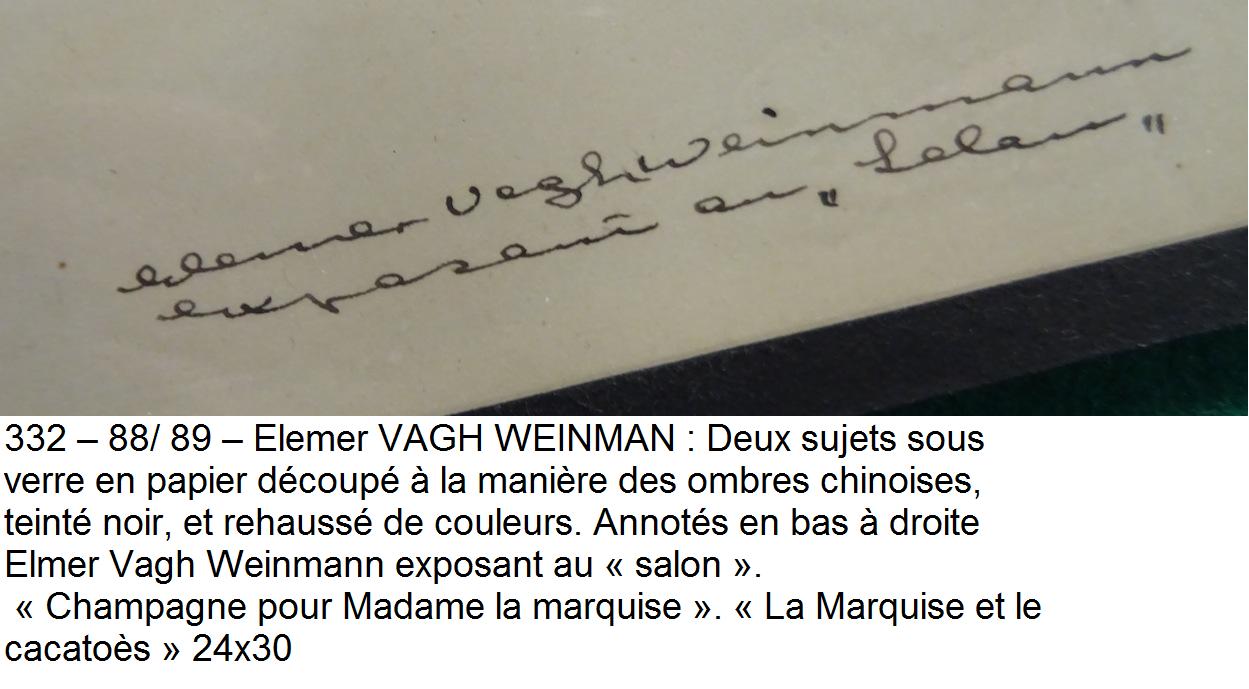 elemer Vagh Weinmann
exposant au „ Salon "
332 – 88/ 89 – Elemer VAGH WEINMAN : Deux sujets sous
verre en papier découpé à la manière des ombres chinoises,
teinté noir, et rehaussé de couleurs. Annotés en bas à droite
Elmer Vagh Weinmann exposant au « salon ».
« Champagne pour Madame la marquise ». « La Marquise et le
cacatoès » 24x30